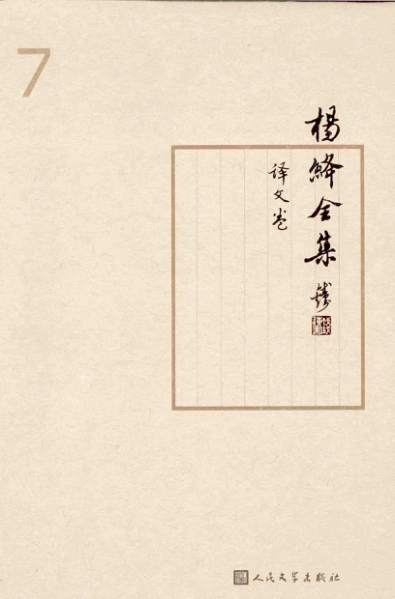 7
杨绛全集
译文卷
人民文学出版社